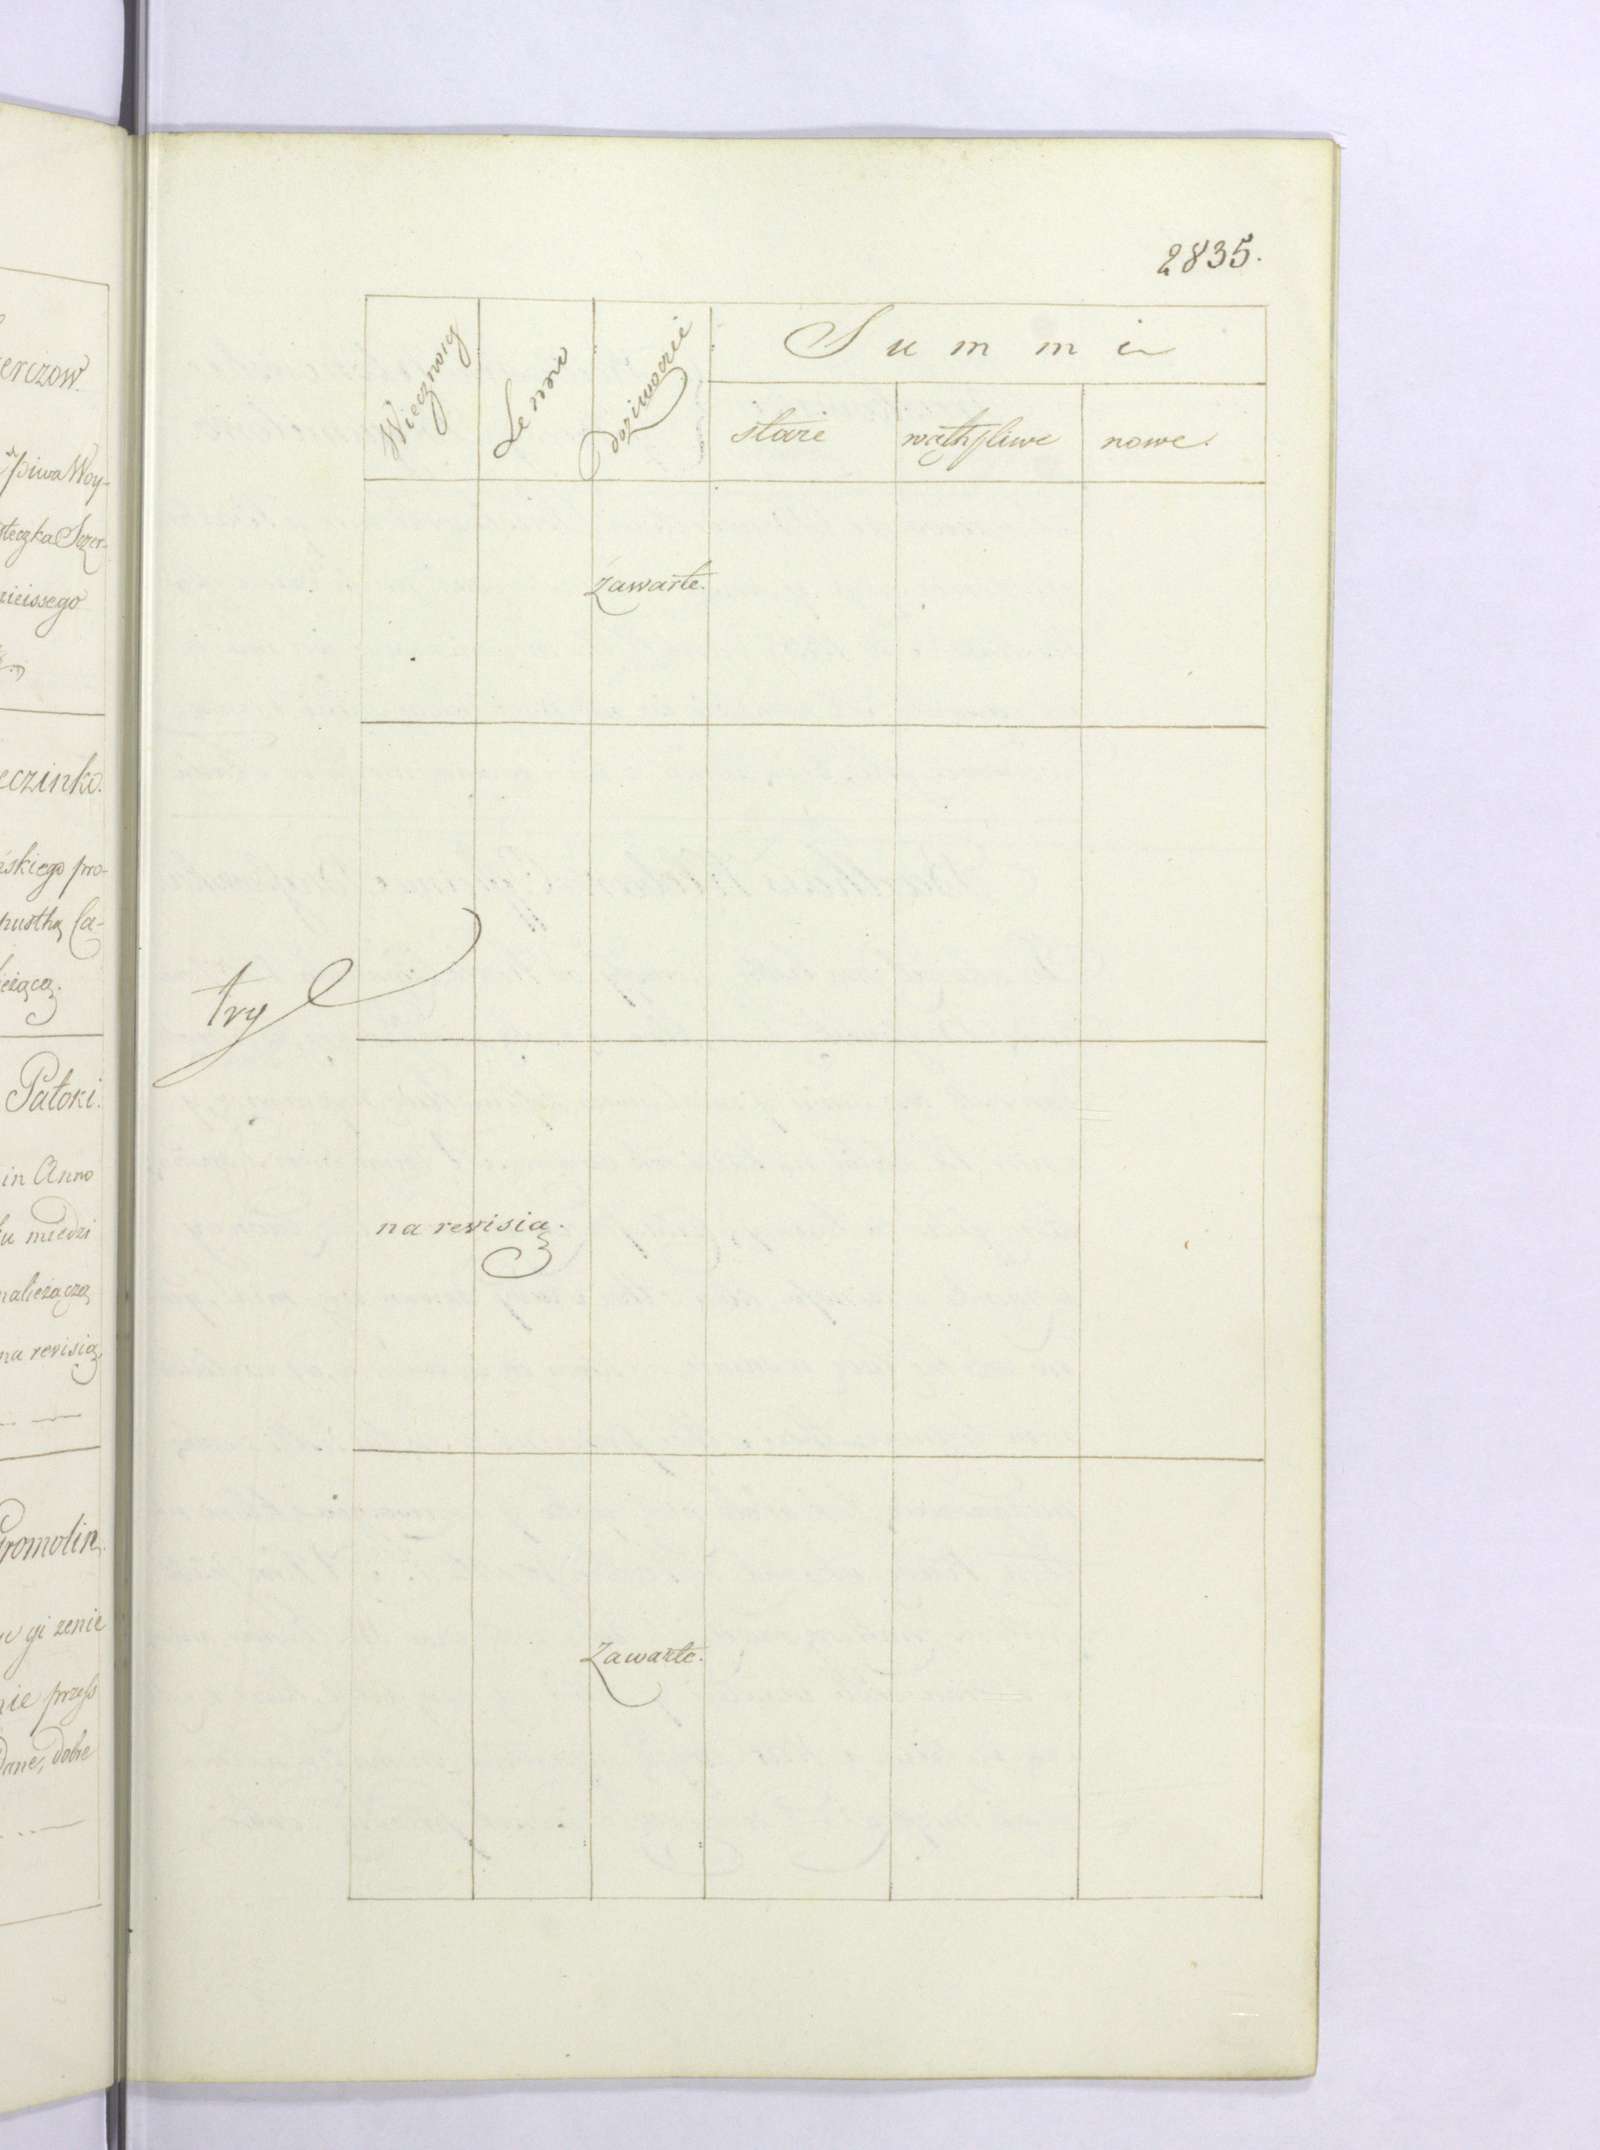 erczow.
piwa Woy-
steczka Sczer-
nieissego
eczinko.
skiego pro-
pustką la-
leżącą.
Patoki.
in Anno
ku miedzi
należączą
na revisią.
Gromolin.
gi żenie
nie przess
dane, dobre
2835.
Wiecznoig
Lenno
Dożiwocie
Summi
stare
wąthpliwe
nowe.
zawarte.
try
na revisią.
zawarte.